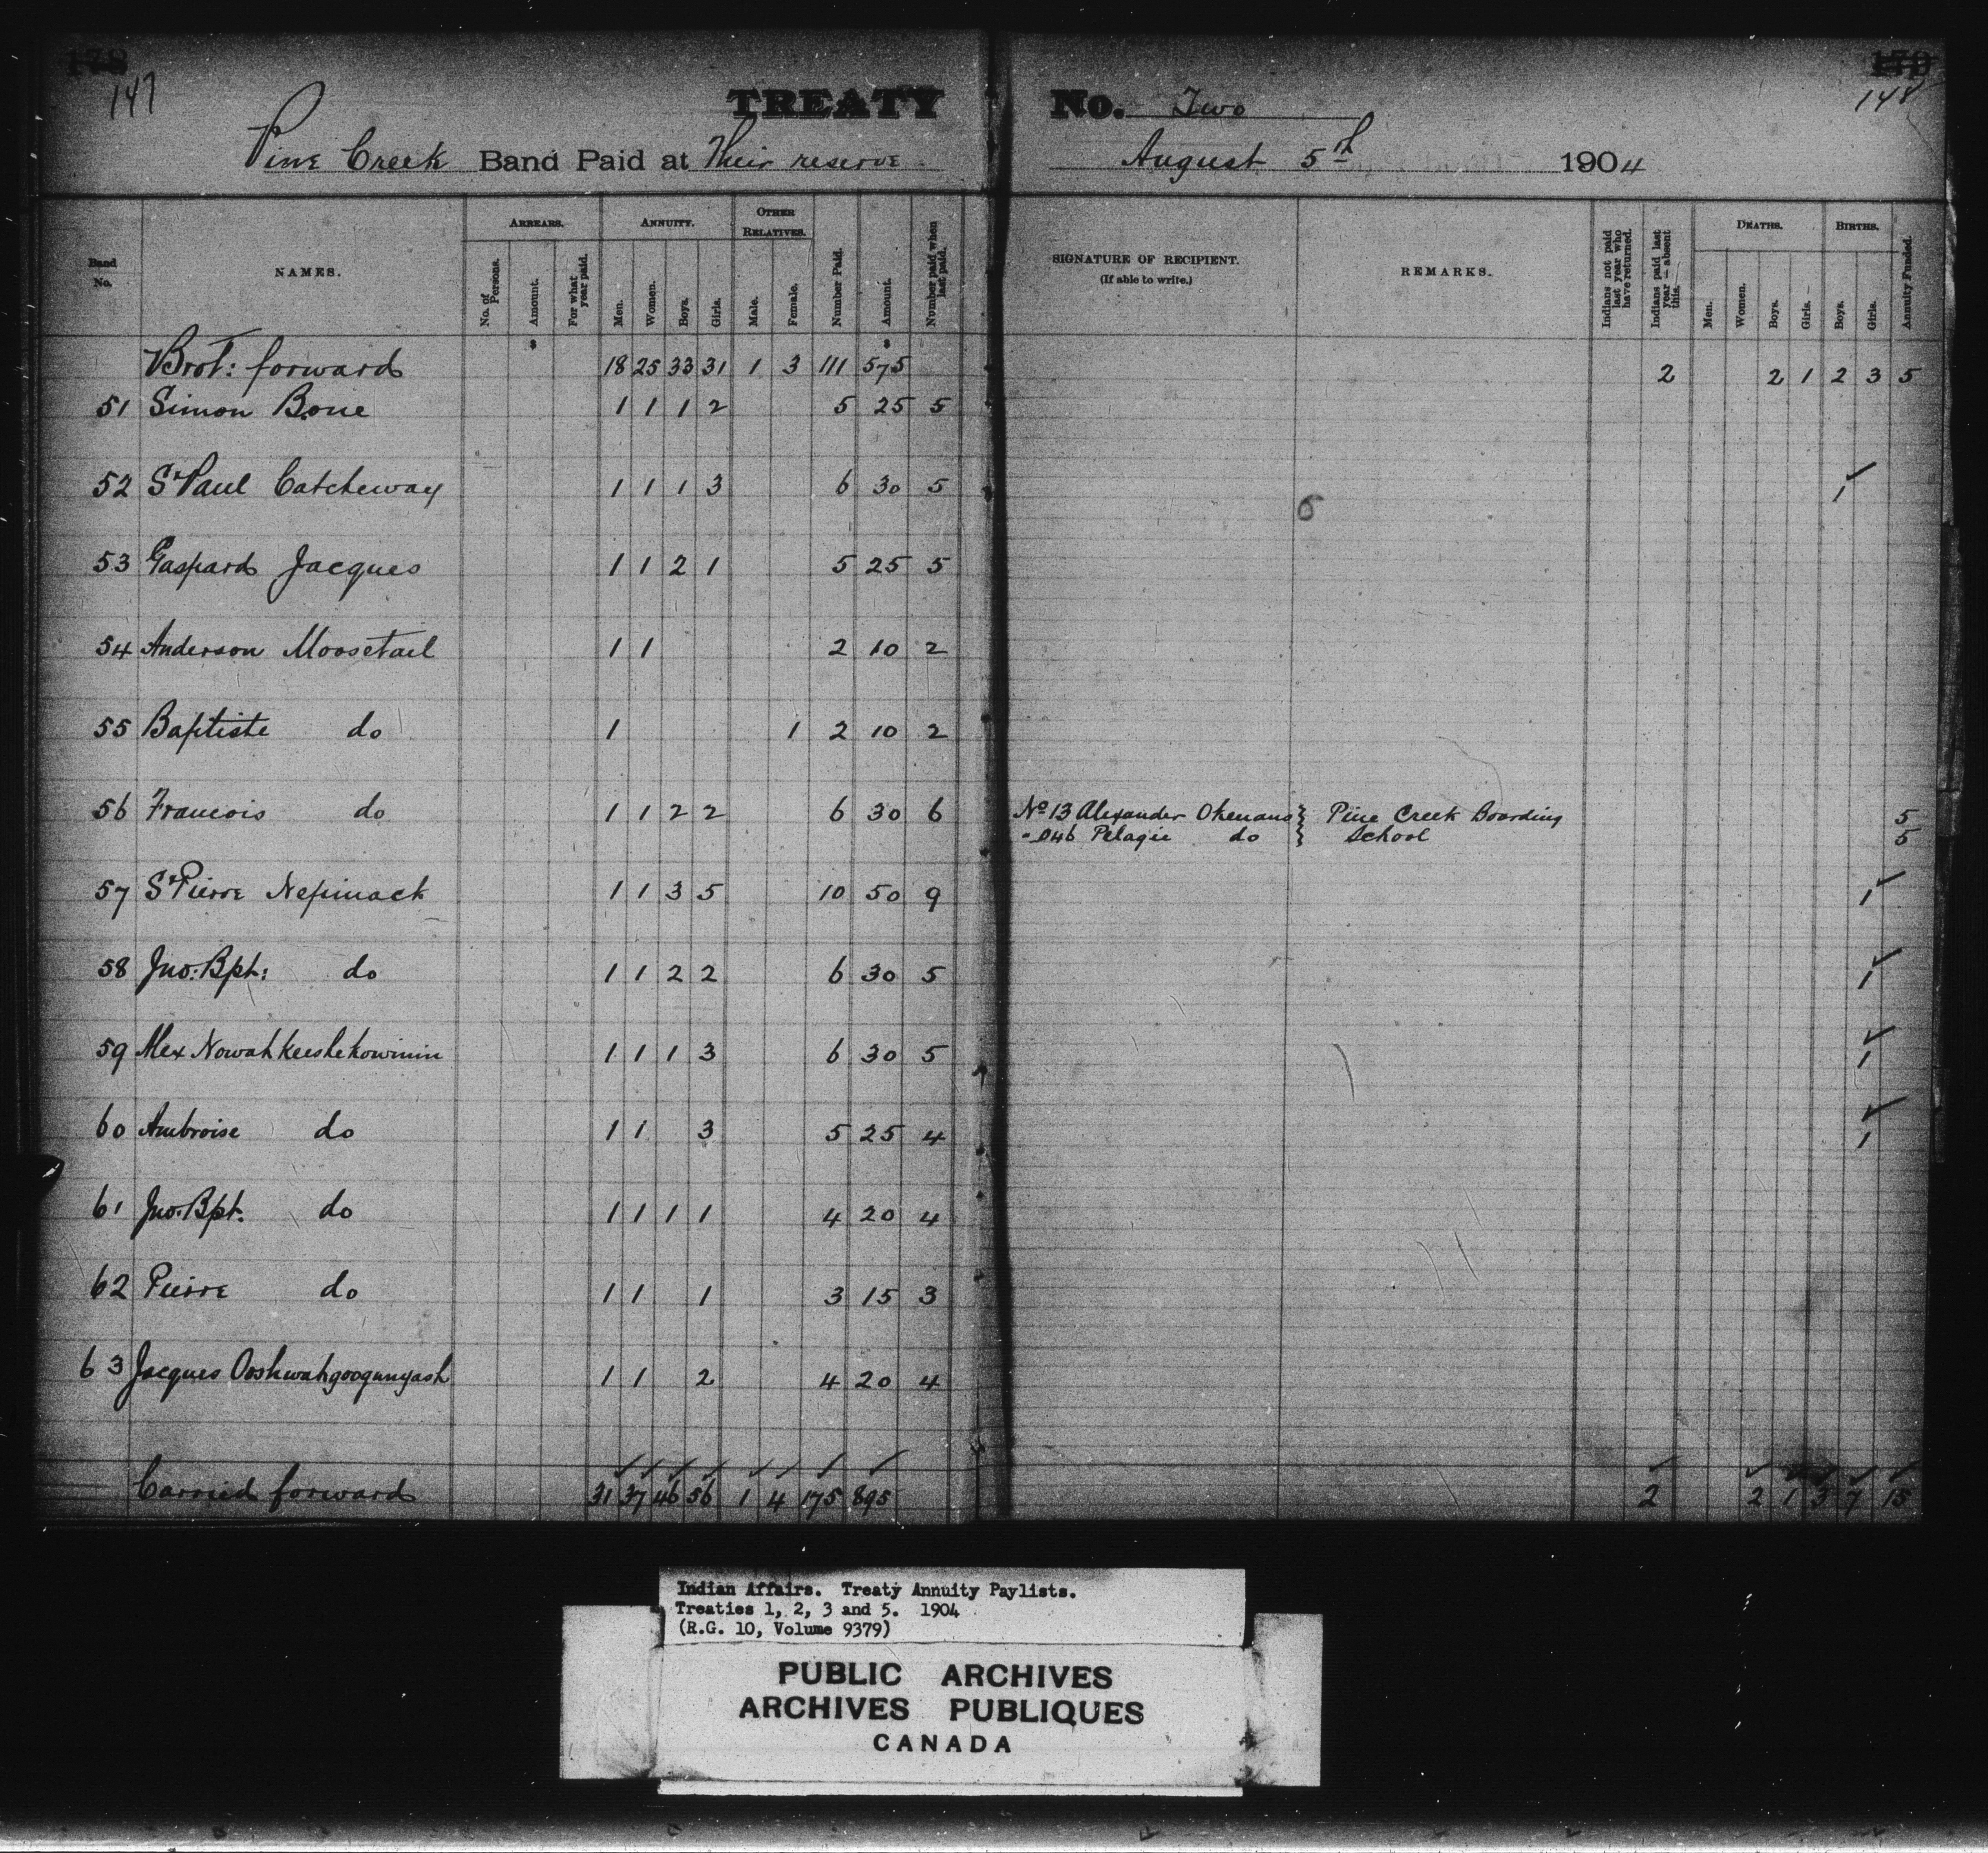 178 179
147 148
TREATY No. Two
Pine Creek Band Paid at Their reserve August 5th 1904
Band No. NAMES. ARREARS. No. of Persons. Amount. For what year paid. ANNUITY. Men. Women. Boys. Girls. OTHER RELATIVES. Male. Female. Number Paid. Amount. Number paid when last paid. SIGNATURE OF RECIPIENT. (If able to write.) REMARKS. Indians not paid last year who have returned. Indians paid last year — absent this. DEATHS. Men. Women. Boys. Girls. BIRTHS. Boys. Girls. Annuity Funded.
$ $
Brot: forward 18 25 33 31 1 3 111 575 2 2 1 2 3 5
51 Simon Bone 1 1 1 2 5 25 5
52 St Paul Catcheway 1 1 1 3 6 30 5 6 1
53 Gaspard Jacques 1 1 2 1 5 25 5
54 Anderson Moosetail 1 1 2 10 2
55 Baptiste do 1 1 2 10 2
56 Francois do 1 1 2 2 6 30 6 No 13 Alexander Okemans } Pine Creek Boarding 5
" 046 Pelagie do } School 5
57 St Pierre Nepinack 1 1 3 5 10 50 9 1
58 Jno: Bpt: do 1 1 2 2 6 30 5 1
59 Alex Nowahkeeshekowinin 1 1 1 3 6 30 5 1
60 Ambroise do 1 1 3 5 25 4 1
61 Jno. Bpt. do 1 1 1 1 4 20 4
62 Pierre do 1 1 1 3 15 3
63 Jacques Ooshwahgoogunyash 1 1 2 4 20 4
Carried forward 31 37 46 56 1 4 175 895 2 2 1 3 7 15
Indian Affairs. Treaty Annuity Paylists.
Treaties 1, 2, 3 and 5. 1904
(R.G. 10, Volume 9379)
PUBLIC ARCHIVES
ARCHIVES PUBLIQUES
CANADA